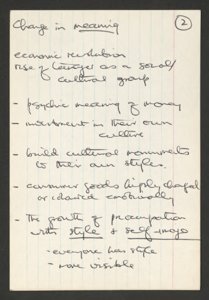 Change in meaning
2
economic revolution
rise of teenager as a social/
cultural group
- psychic meaning of money
- investment in their own
culture
- build cultural monuments
to their own styles.
- consumer goods highly charged
or desired emotionally
- The growth of preoccupation
with style & self-image
- everyone has style
- more visible